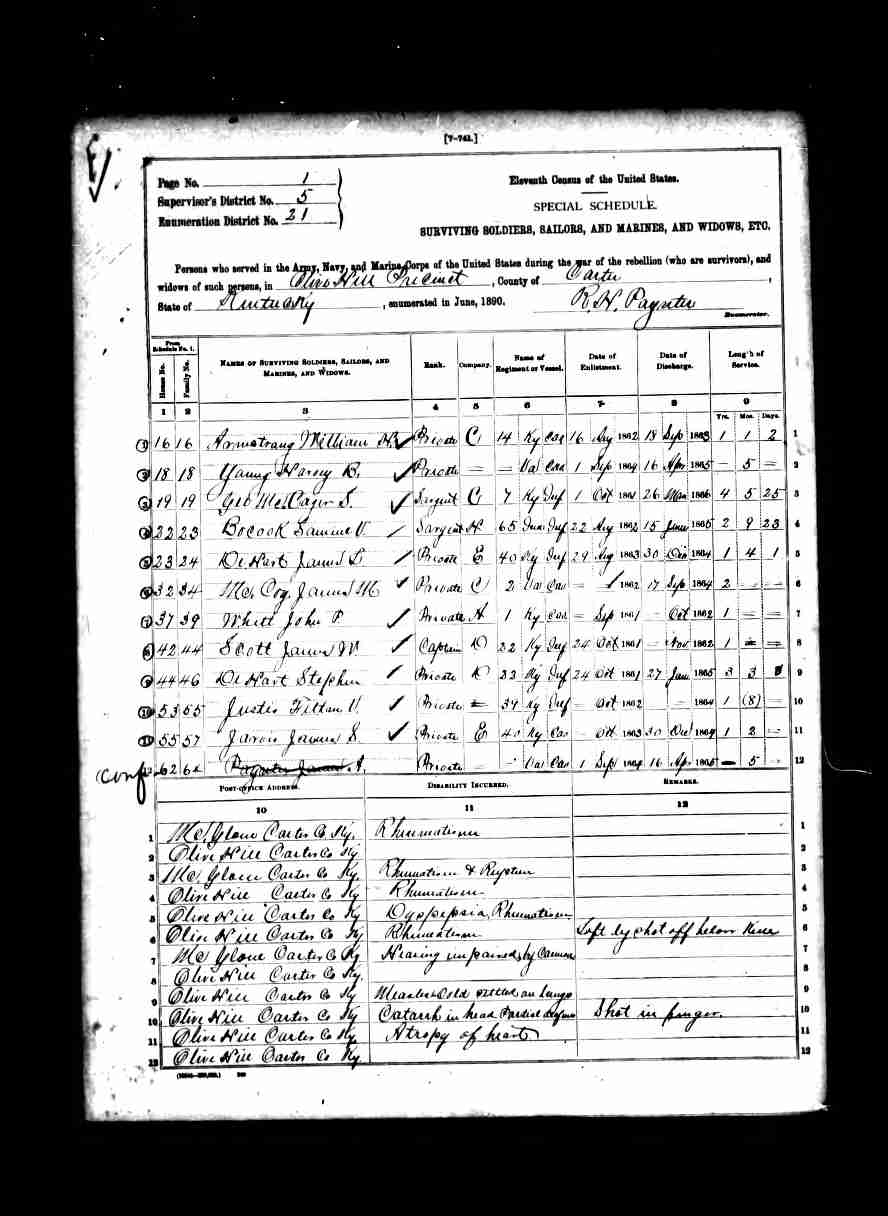 [7-741.]
Page No. 1
Supervisor's District No. 5
Enumeration District No. 21
Eleventh Census of the United States.
SPECIAL SCHEDULE.
SURVIVING SOLDIERS, SAILORS, AND MARINES, AND WIDOWS, ETC.
Persons who served in the Army, Navy, and Marine Corps of the United States during the war of the rebellion (who are survivors), and
widows of such persons, in Olive Hill Precinct, County of Carter,
State of Kentucky, enumerated in June, 1890. R. H. Paynter
Enumerator.
From Schedule No. 1.
House No. Family No. NAMES OF SURVIVING SOLDIERS, SAILORS, AND MARINES, AND WIDOWS. Rank. Company. Name of Regiment or Vessel. Date of Enlistment. Date of Discharge. Length of Service.
Yrs. Mos. Days.
1 2 3 4 5 6 7 8 9
1 16 16 Armstrong William H. Private C 14 Ky Cav 16 Aug 1862 18 Sep 1863 1 1 2 1
2 18 18 Young Harvy B. Private = = Va Cav 1 Sep 1864 16 Apr 1865 – 5 = 2
3 19 19 Geo Mc Cager S. Sargent C 7 Ky Inf 1 Oct 1861 26 Mar 1866 4 5 25 3
4 22 23 Bocook Samuel V. Sargent H 65 Inf 22 Aug 1862 15 June 1865 2 9 23 4
5 23 24 DeHart James L Private E 40 Ky Inf 29 Aug 1863 30 Dec 1864 1 4 1 5
6 32 34 Mc Coy James M Private C 2 Va Cav = 1862 17 Sep 1864 2 - - 6
7 37 39 Whitt John P. Private A 1 Ky Cav = Sep 1861 – Oct 1862 1 = = 7
8 42 44 Scott James W Captain D 22 Ky Inf 24 Oct 1861 – Nov 1862 1 = = 8
9 44 46 DeHart Stephen Private D 22 Ky Inf 24 Oct 1861 27 Jan 1865 3 3 9
10 53 55 Justis V. Private = 39 Ky Inf = Oct 1862 – 1864 1 (8) – 10
11 55 57 Jarvis James S. Private E 40 Ky Cav – Oct 1863 30 Dec 1864 1 2 = 11
Conf 62 62 Paynter James A. Private – – Va Cav 1 Sept 1864 16 Apr 1865 – 5 – 12
POST-OFFICE ADDRESS. DISABILITY INCURRED. REMARKS.
10 11 12
1 Mc Glone Carter Co. Ky. Rheumatism 1
2 Olive Hill Carter Co Ky 2
3 Mc Glone Carter Co Ky. Rhumatism & Rupture 3
4 Olive Hill Carter Co Ky Rhumatism 4
5 Olive Hill Carter Co Ky Dyspepsia, Rhumatism 5
6 Olive Hill Carter Co Ky Rhumatism Left leg shot off below Knee 6
7 Mc Glone Carter Co Ky Hearing impaired by Cannon 7
8 Olive Hill Carter Co Ky. 8
9 Olive Hill Carter Co Ky Measles Cold settled on lungs 9
10 Olive Hill Carter Co Ky Catarrh in head Partial Shot in finger. 10
11 Olive Hill Carter Co Ky. Atropy of heart 11
12 Olive Hill Carter Co Ky. 12